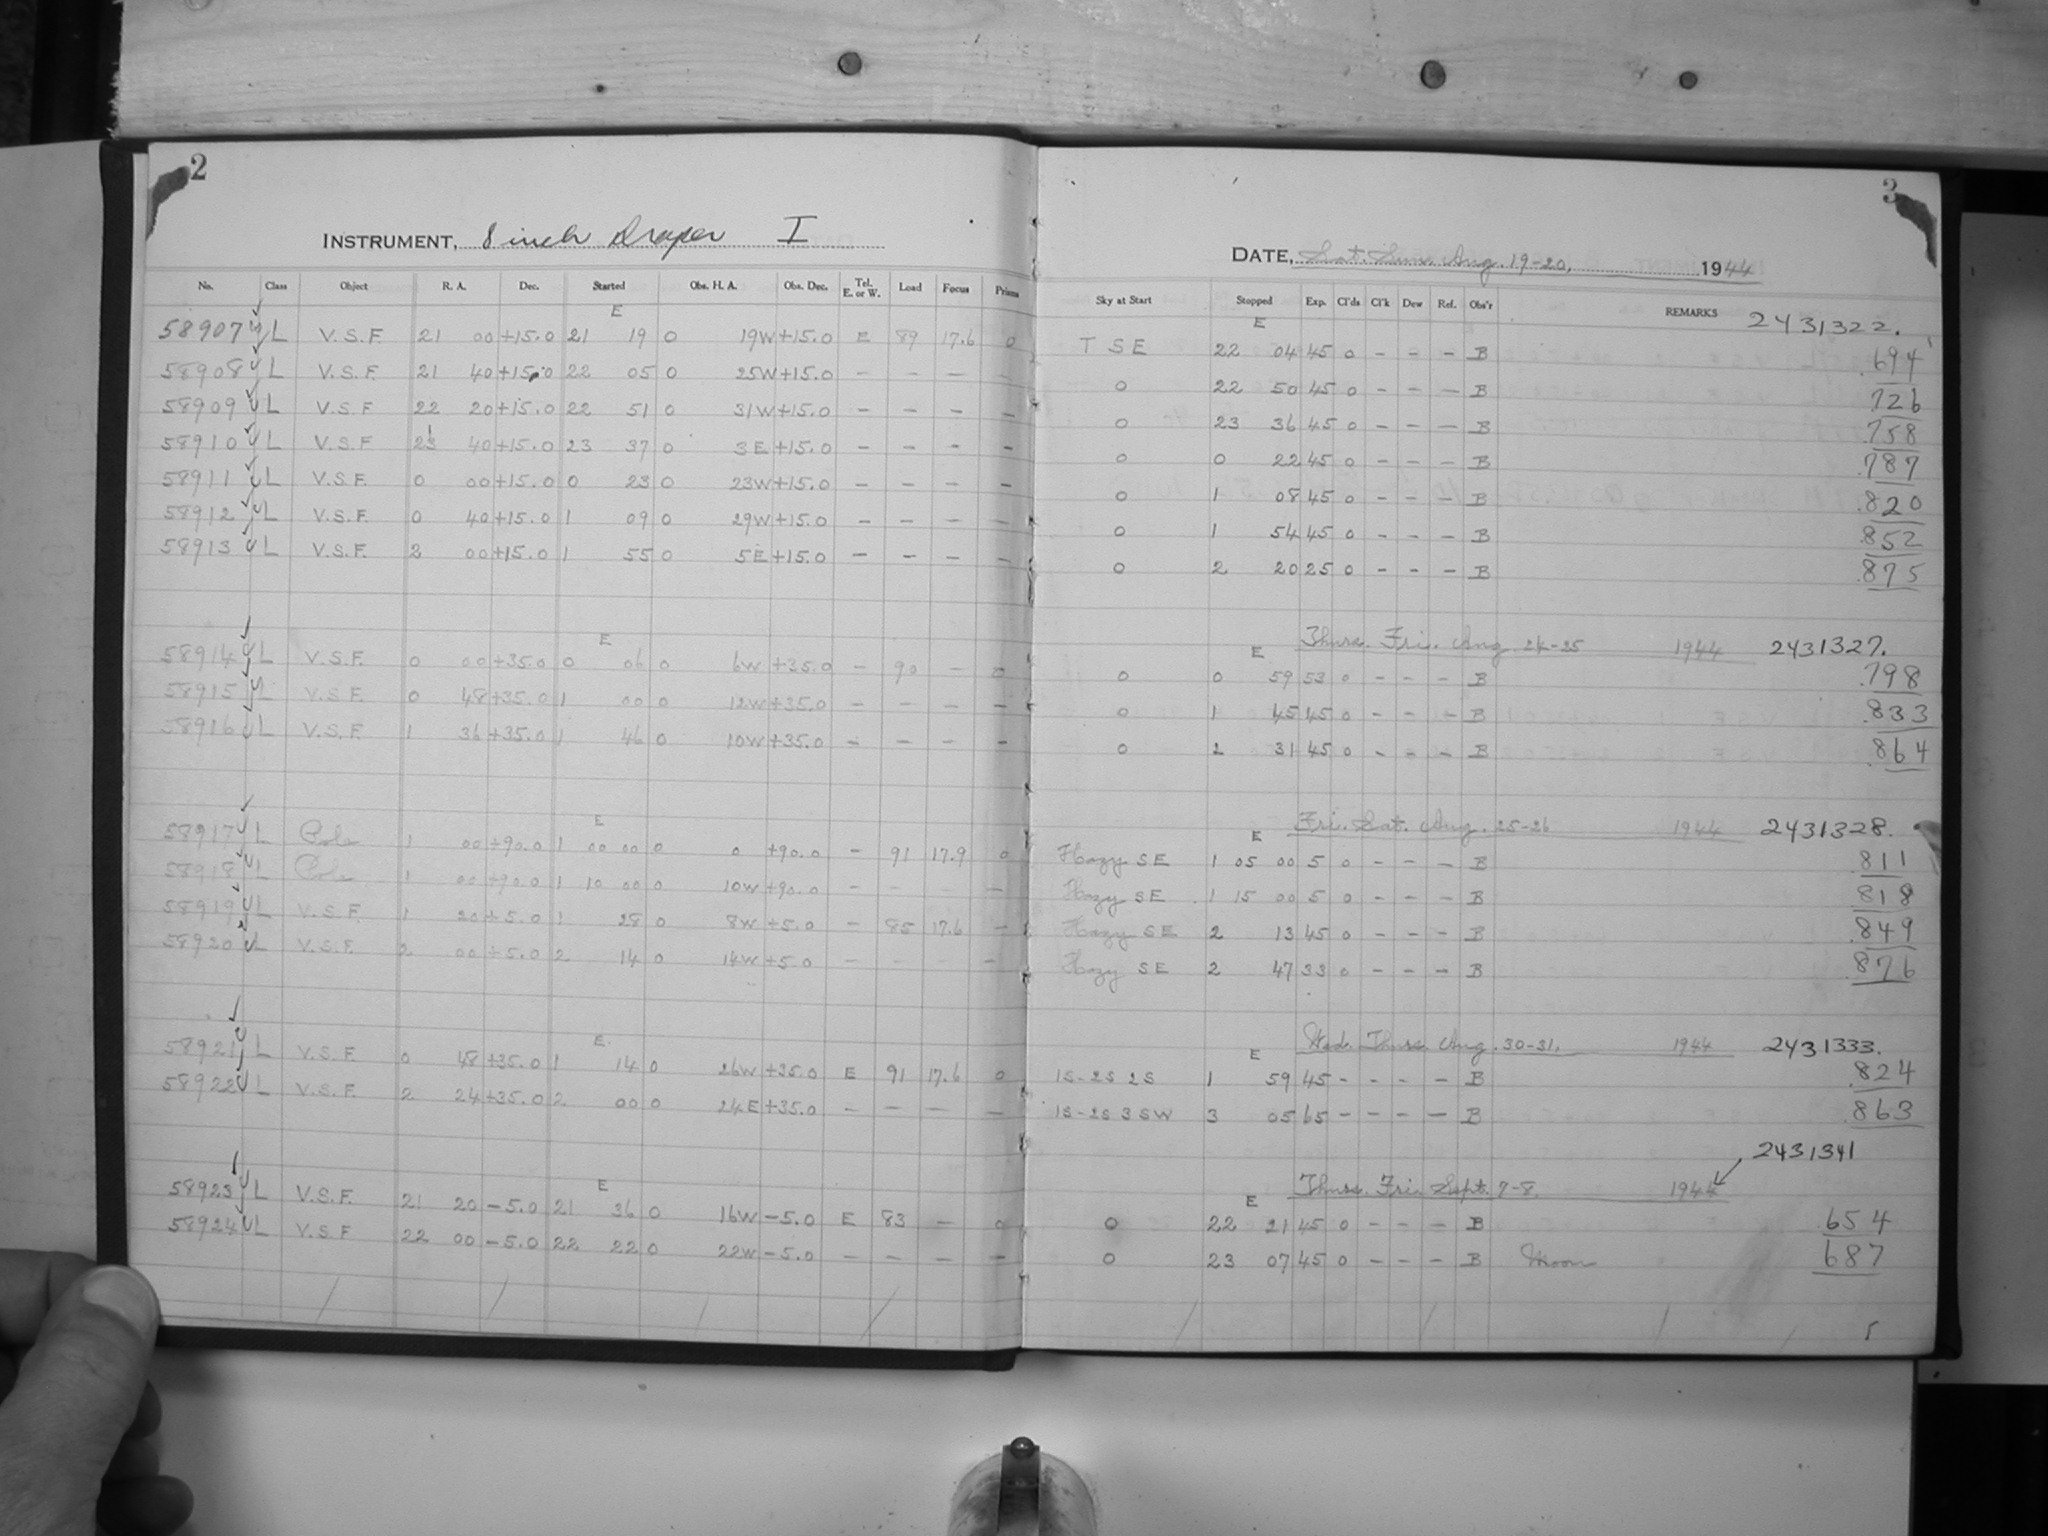 2
INSTRUMENT, 8 inch Draper I
No. Class Object R. A. Dec. Started Obs. H. A. Obs. Dec. Tel. E. or W. Load Focus Prisms
E
58907 L V.S.F. 21 00 +15.0 21 19 0 19W +15.0 E 89 17.6 0
58908 L V.S.F. 21 40 +15.0 22 05 0 25W +15.0 — — — —
58909 L V.S.F 22 20 +15.0 22 51 0 31W +15.0 — — — —
58910 L V.S.F 23 40 +15.0 23 37 0 3E +15.0 — — — —
58911 L V.S.F. 0 00 +15.0 0 23 0 23W +15.0 — — — —
58912 L V.S.F. 0 40 +15.0 1 09 0 29W +15.0 — — — —
58913 L V.S.F. 2 00 +15.0 1 55 0 5E +15.0 — — — —
E
58914 L V.S.F. 0 00 +35.0 0 06 0 6W +35.0 — 90 — 0
58915 L V.S.F. 0 48 +35.0 1 00 0 12W +35.0 — — — —
58916 L V.S.F. 1 36 +35.0 1 46 0 10W +35.0 — — — —
E
58917 L Pole 1 00 +90.0 1 00 00 0 0 +90.0 — 91 17.9 0
58918 L Pole 1 00 +90.0 1 10 00 0 10W +90.0 — — — —
58919 L V.S.F. 1 20 +5.0 1 28 0 8W +5.0 — 85 17.6 —
58920 L V.S.F. 2 00 +5.0 2 14 0 14W +5.0 — — — —
E
58921 L V.S.F. 0 48 +35.0 1 14 0 26W +35.0 E 91 17.6 0
58922 L V.S.F. 2 24 +35.0 2 00 0 24E +35.0 — — — —
E
58923 L V.S.F. 21 20 -5.0 21 36 0 16W -5.0 E 83 — 0
58924 L V.S.F 22 00 -5.0 22 22 0 22W -5.0 — — — —
3
DATE, Sat. Sun. Aug. 19-20, 1944
Sky at Start Stopped Exp. Cl'ds Cl'k Dew Ref. Obs'r REMARKS 2431322.
E
T SE 22 04 45 0 - - - B .694
0 22 50 45 0 - - - B 726
0 23 36 45 0 - - - B .758
0 0 22 45 0 - - - B .787
0 1 08 45 0 - - - B .820
0 1 54 45 0 - - - B .852
0 2 20 25 0 - - - B .875
E Thurs. Fri. Aug. 24-25 1944 2431327.
0 0 59 53 0 - - - B .798
0 1 45 45 0 - - - B .833
0 2 31 45 0 - - - B .864
E Fri. Sat. Aug. 25-26 1944 2431328.
Hazy SE 1 05 00 5 0 - - - B .811
Hazy SE 1 15 00 5 0 - - - B .818
Hazy SE 2 13 45 0 - - - B .849
Hazy SE 2 47 33 0 - - - B .876
E Wed. Thurs. Aug. 30-31. 1944 2431333.
1S-2S 2S 1 59 45 - - - - B .824
1S-2S 3 SW 3 05 65 - - - - B .863
2431341
E Thurs. Fri. Sept. 7-8. 1944
0 22 21 45 0 - - - B .654
0 23 07 45 0 - - - B Moon .687